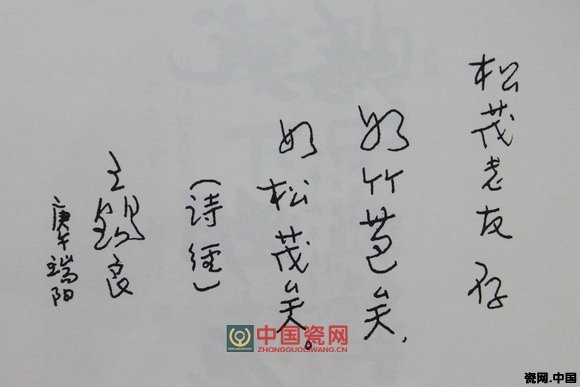 松茂老友存
如竹苞矣，
如松茂矣。
（诗经）
王锡良
庚午端阳
中国瓷网
ZHONGGUOCIWANG.CN
瓷网.中国